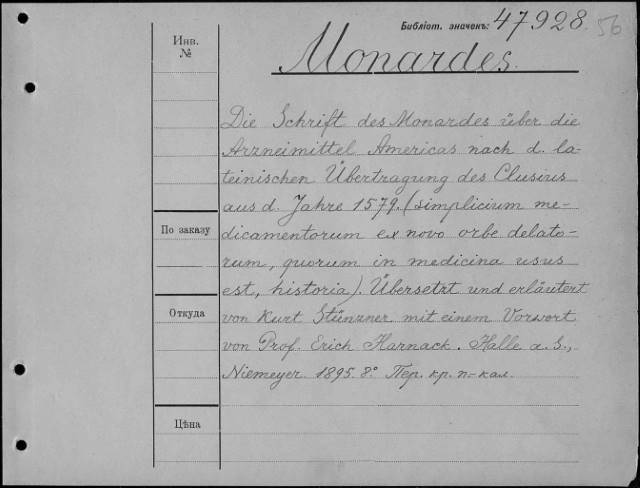 Библіот. значекъ: 47928. 56
Инв.
№
Monardes.
Die Schrift des Monardes über die
Arzneimittel Americas nach d. la-
teinischen Übertragung des Clusius
aus d. Jahre 1579. (simplicium me-
По заказу
dicamentorum ex novo orbe delato-
rum, quorum in medicina usus
est, historia). Übersetzt und erläutert
Откуда
von Kurt Stünzner mit einem Vorwort
von Prof. Erich Harnack. Halle a. S.,
Niemeyer. 1895. 8° Пер. кр. п.-кал.
Цѣна